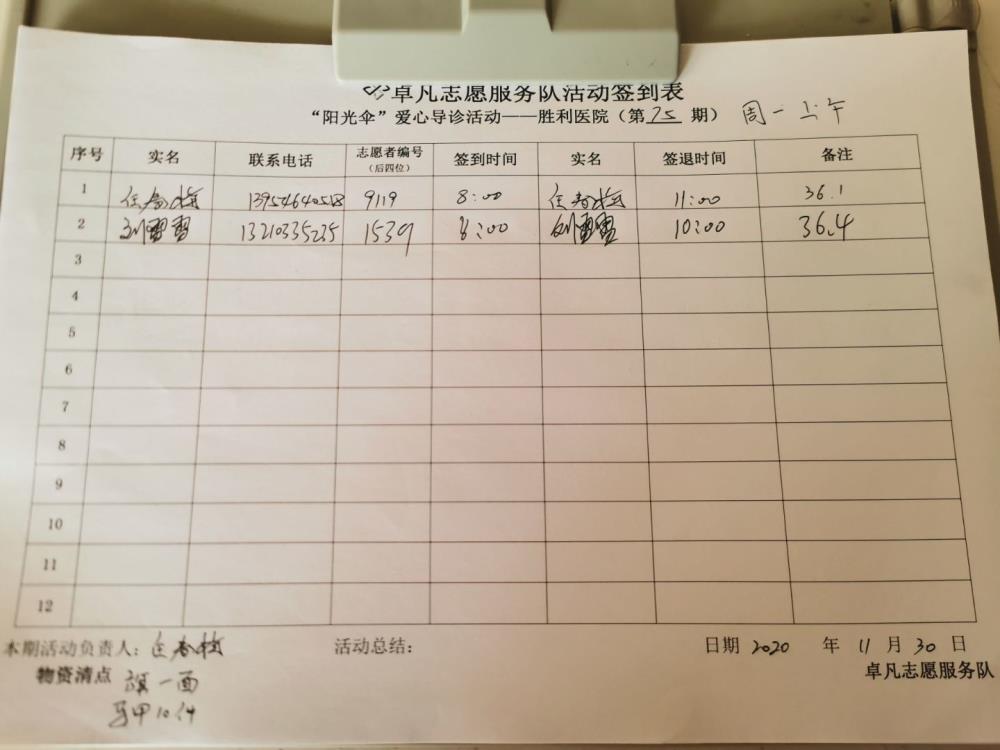 卓凡志愿服务队活动签到表
“阳光伞”爱心导诊活动——胜利医院（第 75 期） 周一上午
序号 实名 联系电话 志愿者编号（后四位） 签到时间 实名 签退时间 备注
1 任春梅 13954640518 9119 8:00 任春梅 11:00 36.1
2 刘雷雷 13210335235 1539 8:00 刘雷雷 10:00 36.4
3
4
5
6
7
8
9
10
11
12
本期活动负责人：任春梅 活动总结： 日期 2020 年 11 月 30 日
物资清点 旗一面 卓凡志愿服务队
马甲10件